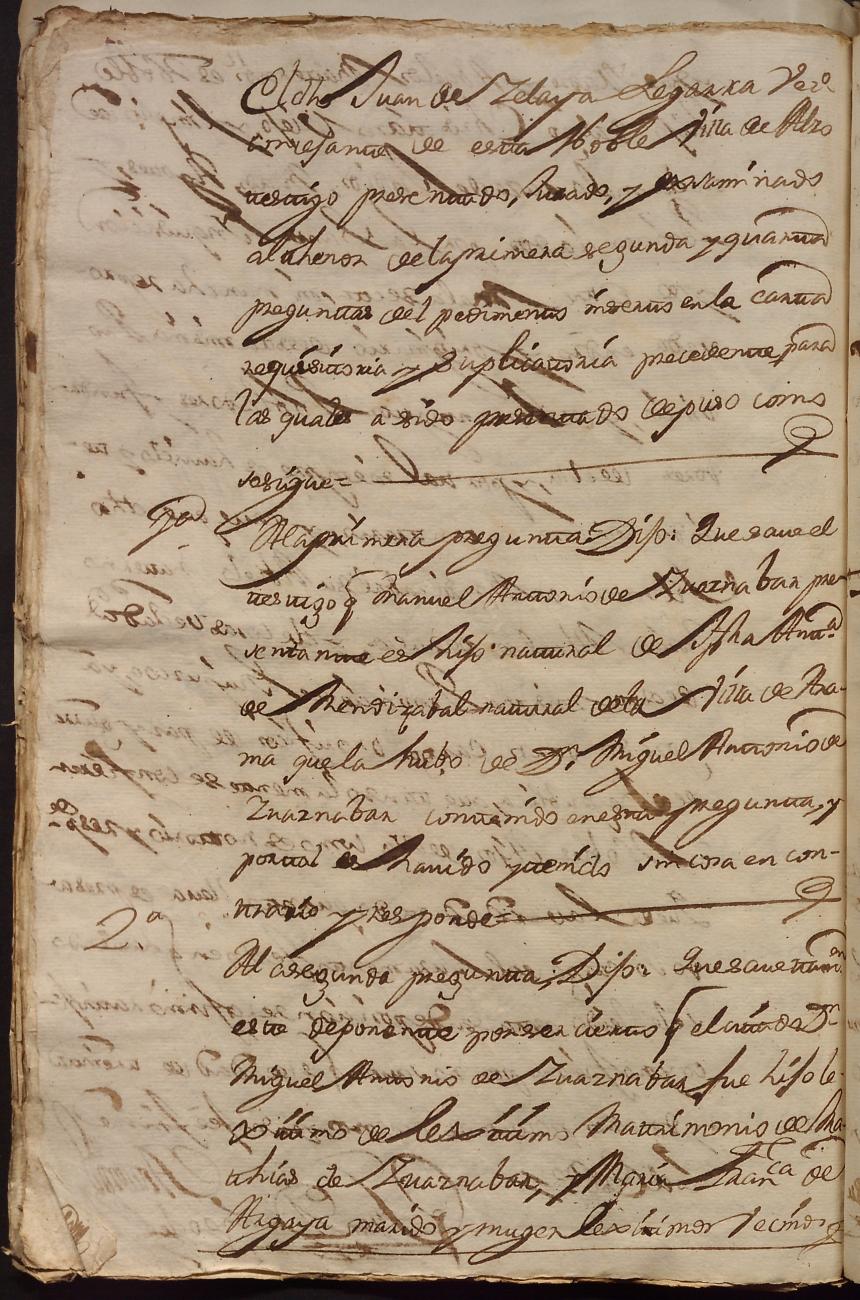 El dho Juan de Zelaya Legarra Vezº
conzesante de esta Noble Villa de Alzo
testigo presentado, Jurado, y examinado
al thenor de la primera segunda y quarta
preguntas del pedimento inserto en la carta
requisitoria y Suplicatoria precedente para
las quales a sido presentado depuso como
se sigue =
1ª
A la primera pregunta: Dijo: Que save el
testigo q̃ Manuel Antonio de Zuaznabar pre
sentante es hijo natural de Jpha Antª
de Mendizabal natural de la Villa de Ara-
ma que la hubo de Dn. Miguel Antonio de
Zuaznabar contenido en esta pregunta, y
por tal es havido y tenido sin cosa en con-
trario y responde
2.ª
A la segunda pregunta, Dijo: Que save tamen
este deponente por ser cierto q̃ el citado Dn
Miguel Antonio de Zuaznabar fue hijo le-
xitimo de lexitimo Matrimonio de Ma-
thias de Zuaznabar, y Maria Franca de
Aigaya marido y muger lexitimos Vecinos